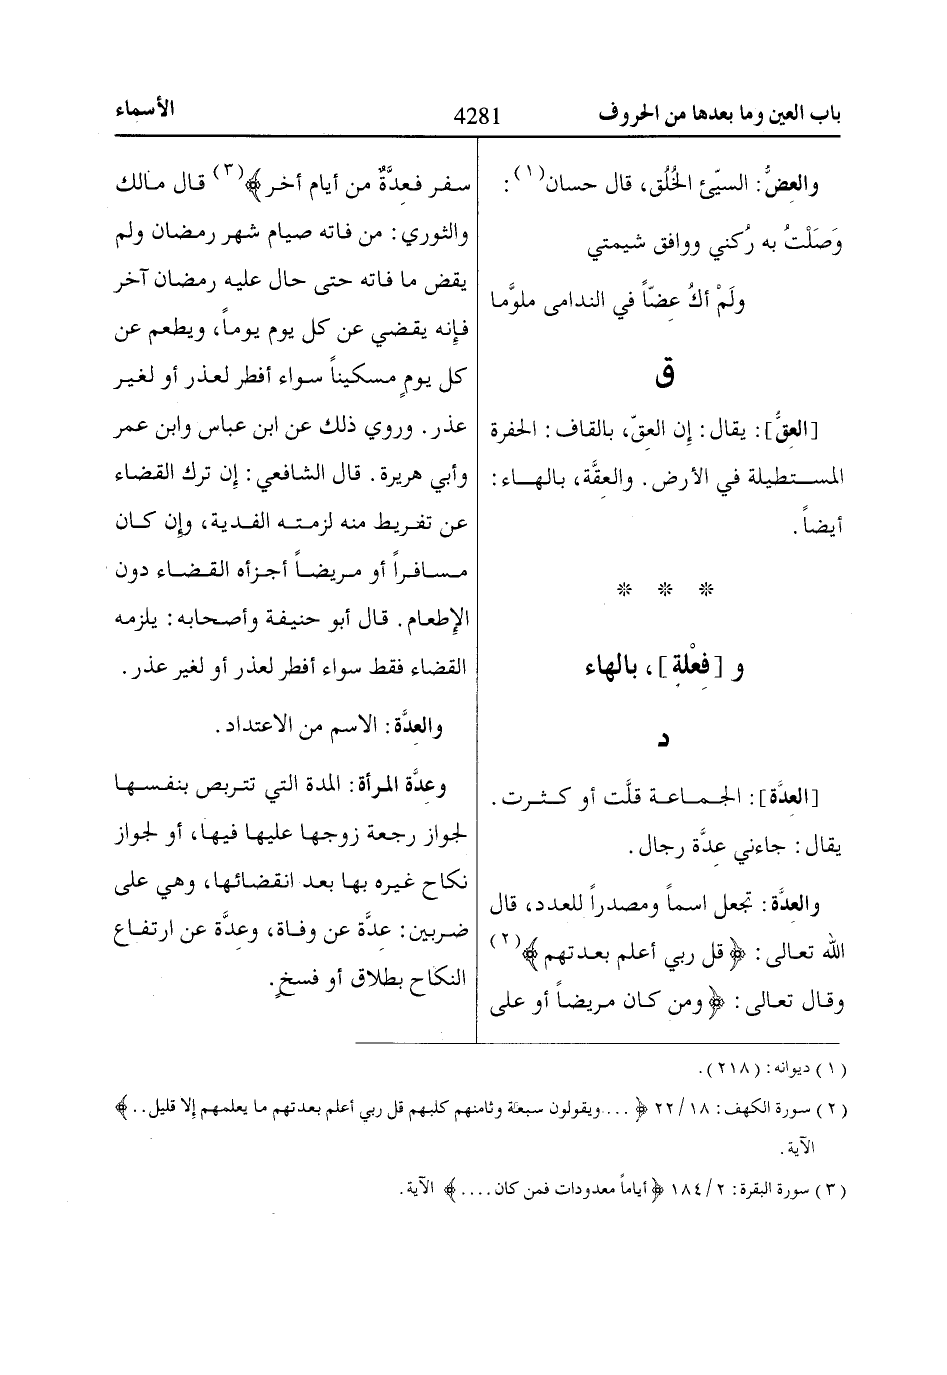 باب العين وما بعدها من الحروف 4281 الأسماء
والعِضُّ: السيّئ الخُلُق، قال حسان(١):
وَصَلْتُ به رُكني ووافق شيمتي
ولَمْ أكُ عِضّاً في الندامى ملوَّما
ق
[العِقُّ]: يقال: إن العِقّ، بالقاف: الحفرة
المستطيلة في الأرض. والعِقَّة، بالهاء:
أيضاً.
* * *
و [فِعْلة]، بالهاء
د
[العِدَّة]: الجماعة قلَّت أو كثرت.
يقال: جاءني عِدَّة رجال.
والعِدَّة: تجعل اسماً ومصدراً للعدد، قال
الله تعالى: ﴿قل ربي أعلم بعدتهم﴾(٢)
وقال تعالى: ﴿ومن كان مريضاً أو على
سفر فعِدَّةٌ من أيام أخر﴾(٣) قال مالك
والثوري: من فاته صيام شهر رمضان ولم
يقض ما فاته حتى حال عليه رمضان آخر
فإنه يقضي عن كل يوم يوماً، ويطعم عن
كل يومٍ مسكيناً سواء أفطر لعذر أو لغير
عذر. وروي ذلك عن ابن عباس وابن عمر
وأبي هريرة. قال الشافعي: إن ترك القضاء
عن تفريط منه لزمته الفدية، وإن كان
مسافراً أو مريضاً أجزأه القضاء دون
الإطعام. قال أبو حنيفة وأصحابه: يلزمه
القضاء فقط سواء أفطر لعذر أو لغير عذر.
والعِدَّة: الاسم من الاعتداد.
وعِدَّة المرأة: المدة التي تتربص بنفسها
لجواز رجعة زوجها عليها فيها، أو لجواز
نكاح غيره بها بعد انقضائها، وهي على
ضربين: عدَّة عن وفاة، وعدَّة عن ارتفاع
النكاح بطلاق أو فسخٍ.
(١) ديوانه: (٢١٨).
(٢) سورة الكهف: ١٨/ ٢٢ ﴿ ... ويقولون سبعة وثامنهم كلبهم قل ربي أعلم بعدتهم ما يعلمهم إلا قليل..﴾
الآية.
(٣) سورة البقرة: ٢/ ١٨٤ ﴿أياماً معدودات فمن كان ....﴾ الآية.